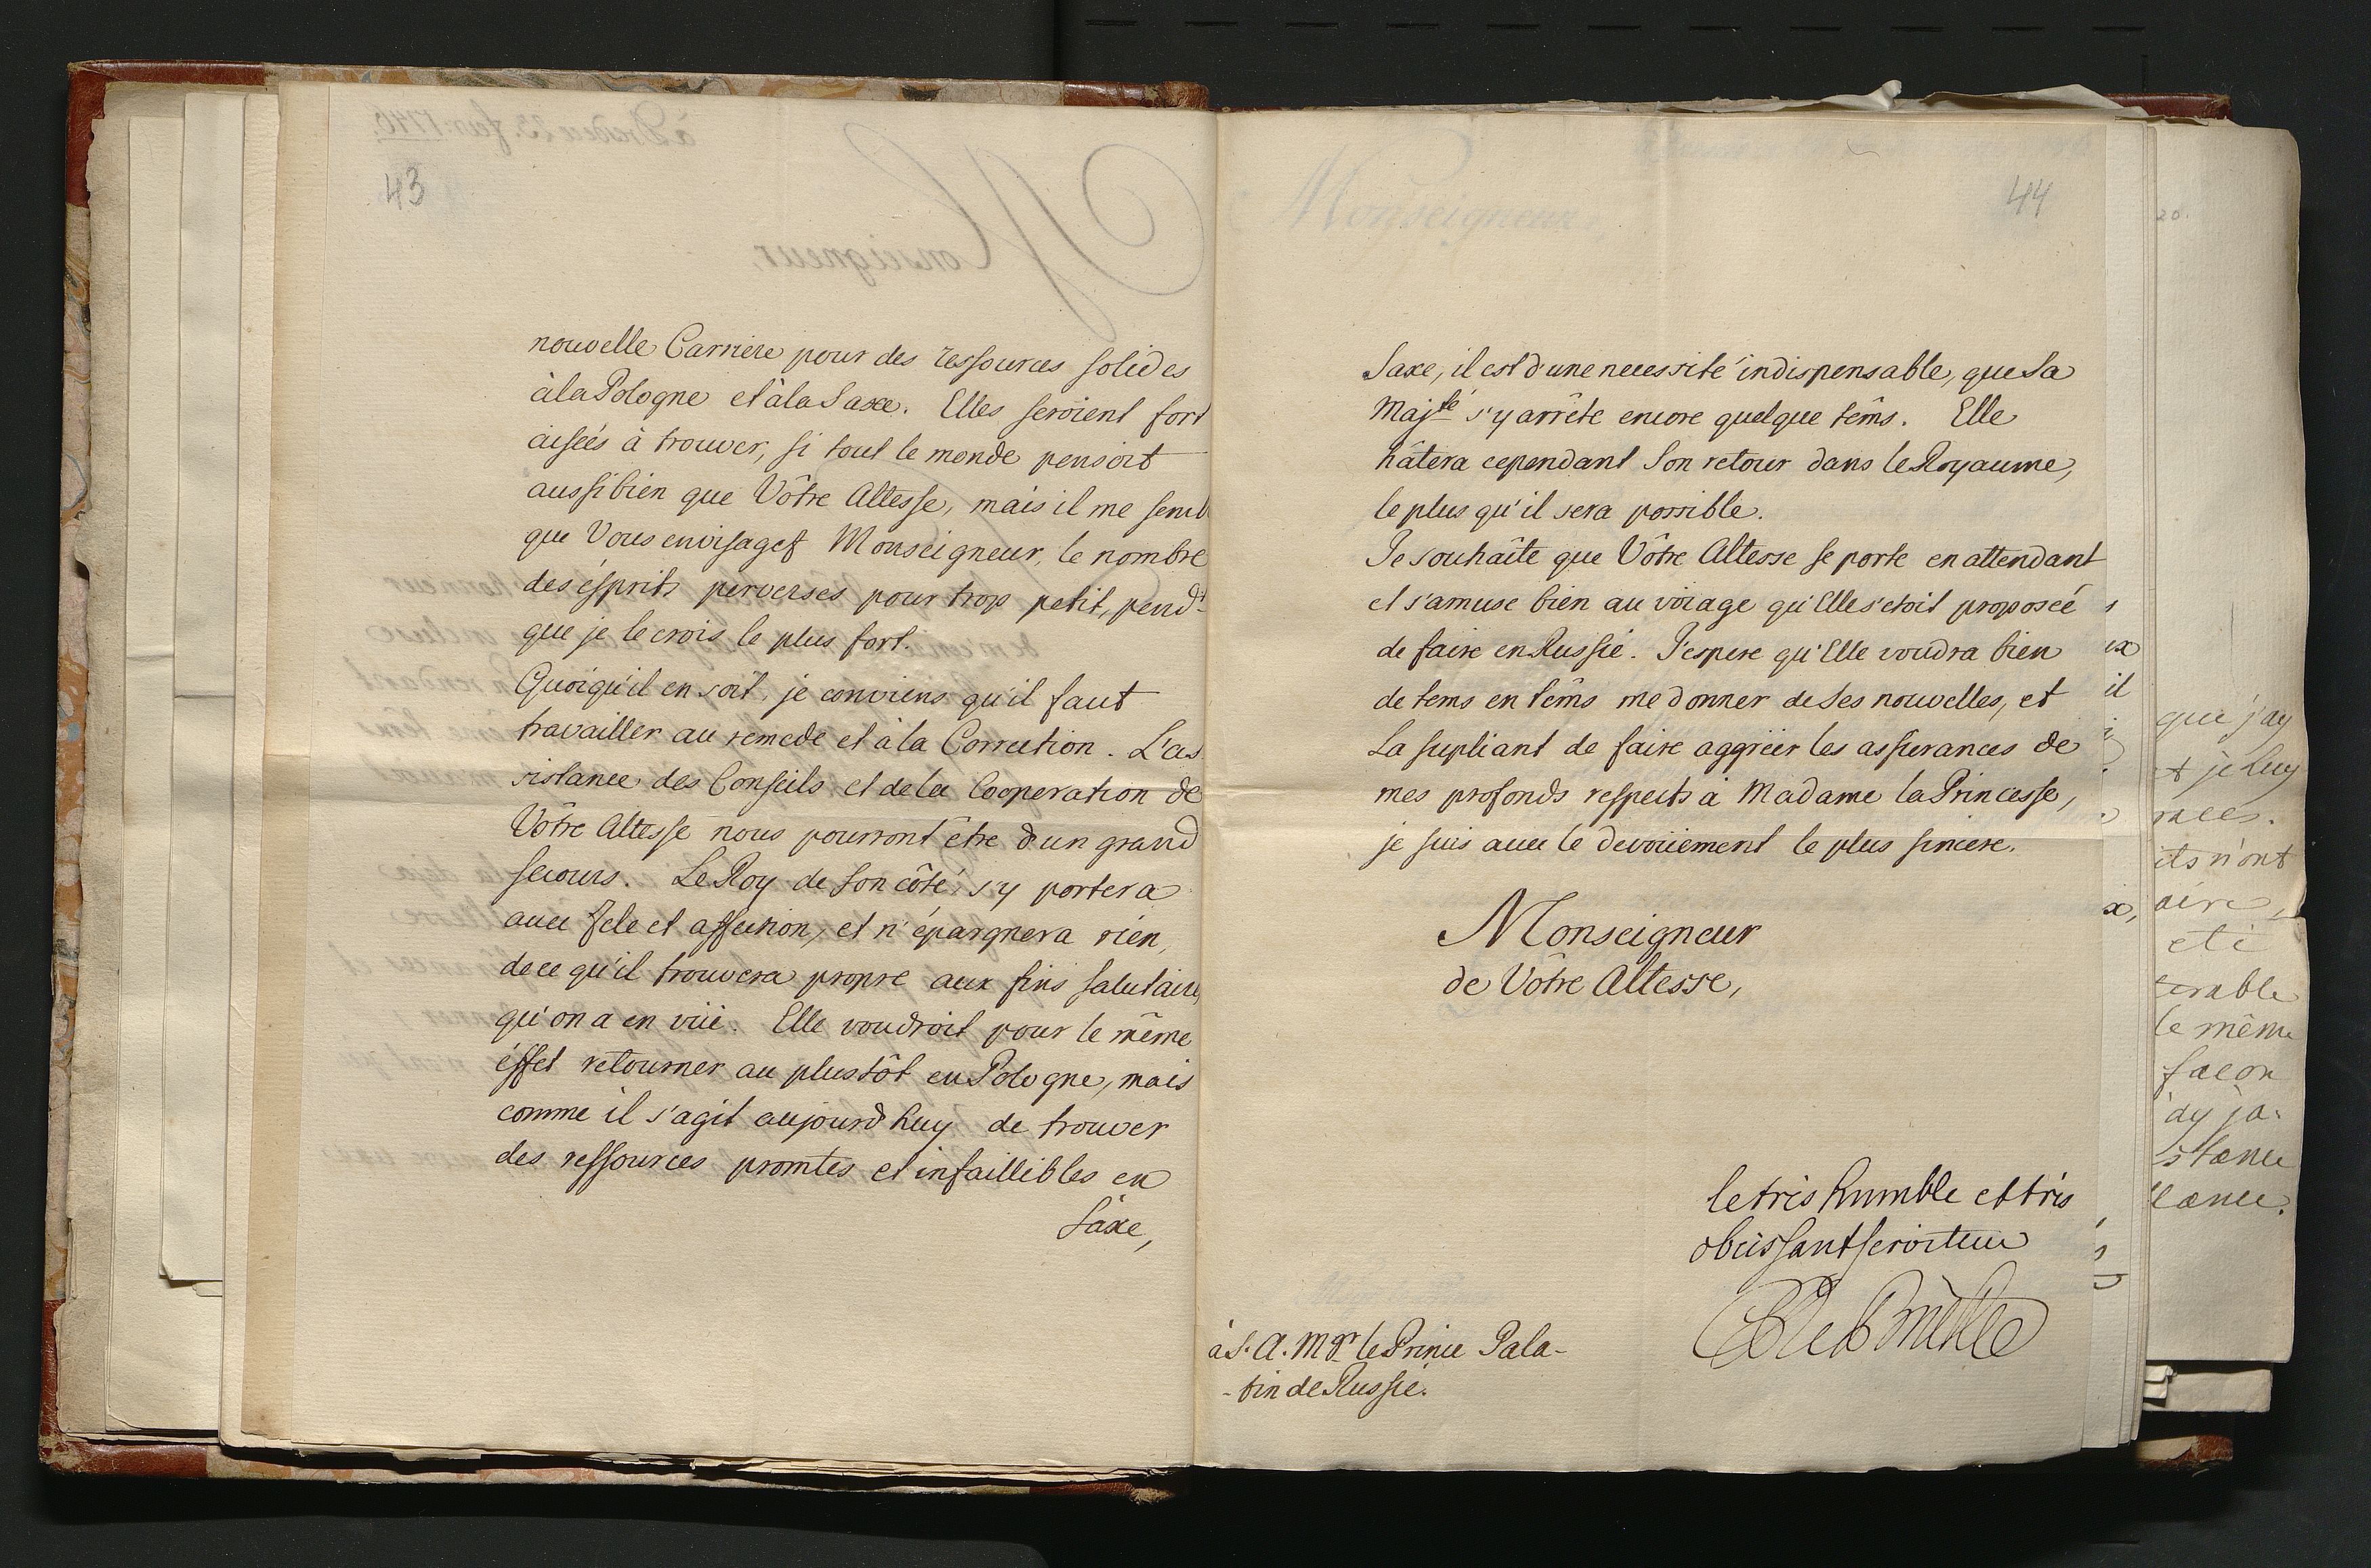 43
nouvelle Carriere pour des ressources solides
à la Pologne et à la Saxe. Elles seroient fort
aiseés à trouver, si tout le monde pensoit
aussi bien que Vôtre Altesse, mais il me semb
que Vous envisagez Monseigneur, le nombre
des ésprits perverses pour trop petit, pend.t
que je le crois le plus fort.
Quoiqu'il en soit, je conviens qu'il faut
travailler au remede et à la Correction. L'as
sistance des Conseils et de la Cooperation de
Vôtre Altesse nous pourront être d'un grand
secours. Le Roy de Son côté s'y portera
avec Zele et affection, et n'épargnera rien,
de ce qu'il trouvera propre aux fins salutaire
qu'on a en vüe. Elle voudroit pour le même
éffet retourner au plustôt en Pologne, mais
comme il s'agit aujourd'huy de trouver
des ressources promtes et infaillibles en
Saxe,
44
Saxe, il est d'une necessité indispensable, que Sa
Maj.té s'y arrête encore quelque têms. Elle
hâtera cependant Son retour dans le Royaume,
le plus qu'il sera possible.
Je souhaîte que Vôtre Altesse se porte en attendant
et s'amuse bien au voiage qu'Elle s'etoit proposeé
de faire en Russie. J'espere qu'Elle voudra bien
de tems en têms me donner de Ses nouvelles, et
La supliant de faire aggréer les assurances de
mes profonds respects à Madame la Princesse,
je suis avec le devoüement le plus sincere.
Monseigneur
de Vôtre Altesse,
le tres humble et tres
obeissant serviteur
C de Brühl
à S. A. Mgr le Prince Pala-
-tin de Russie.
que j'ay
et je Luy
ils n'ont
le même
façon